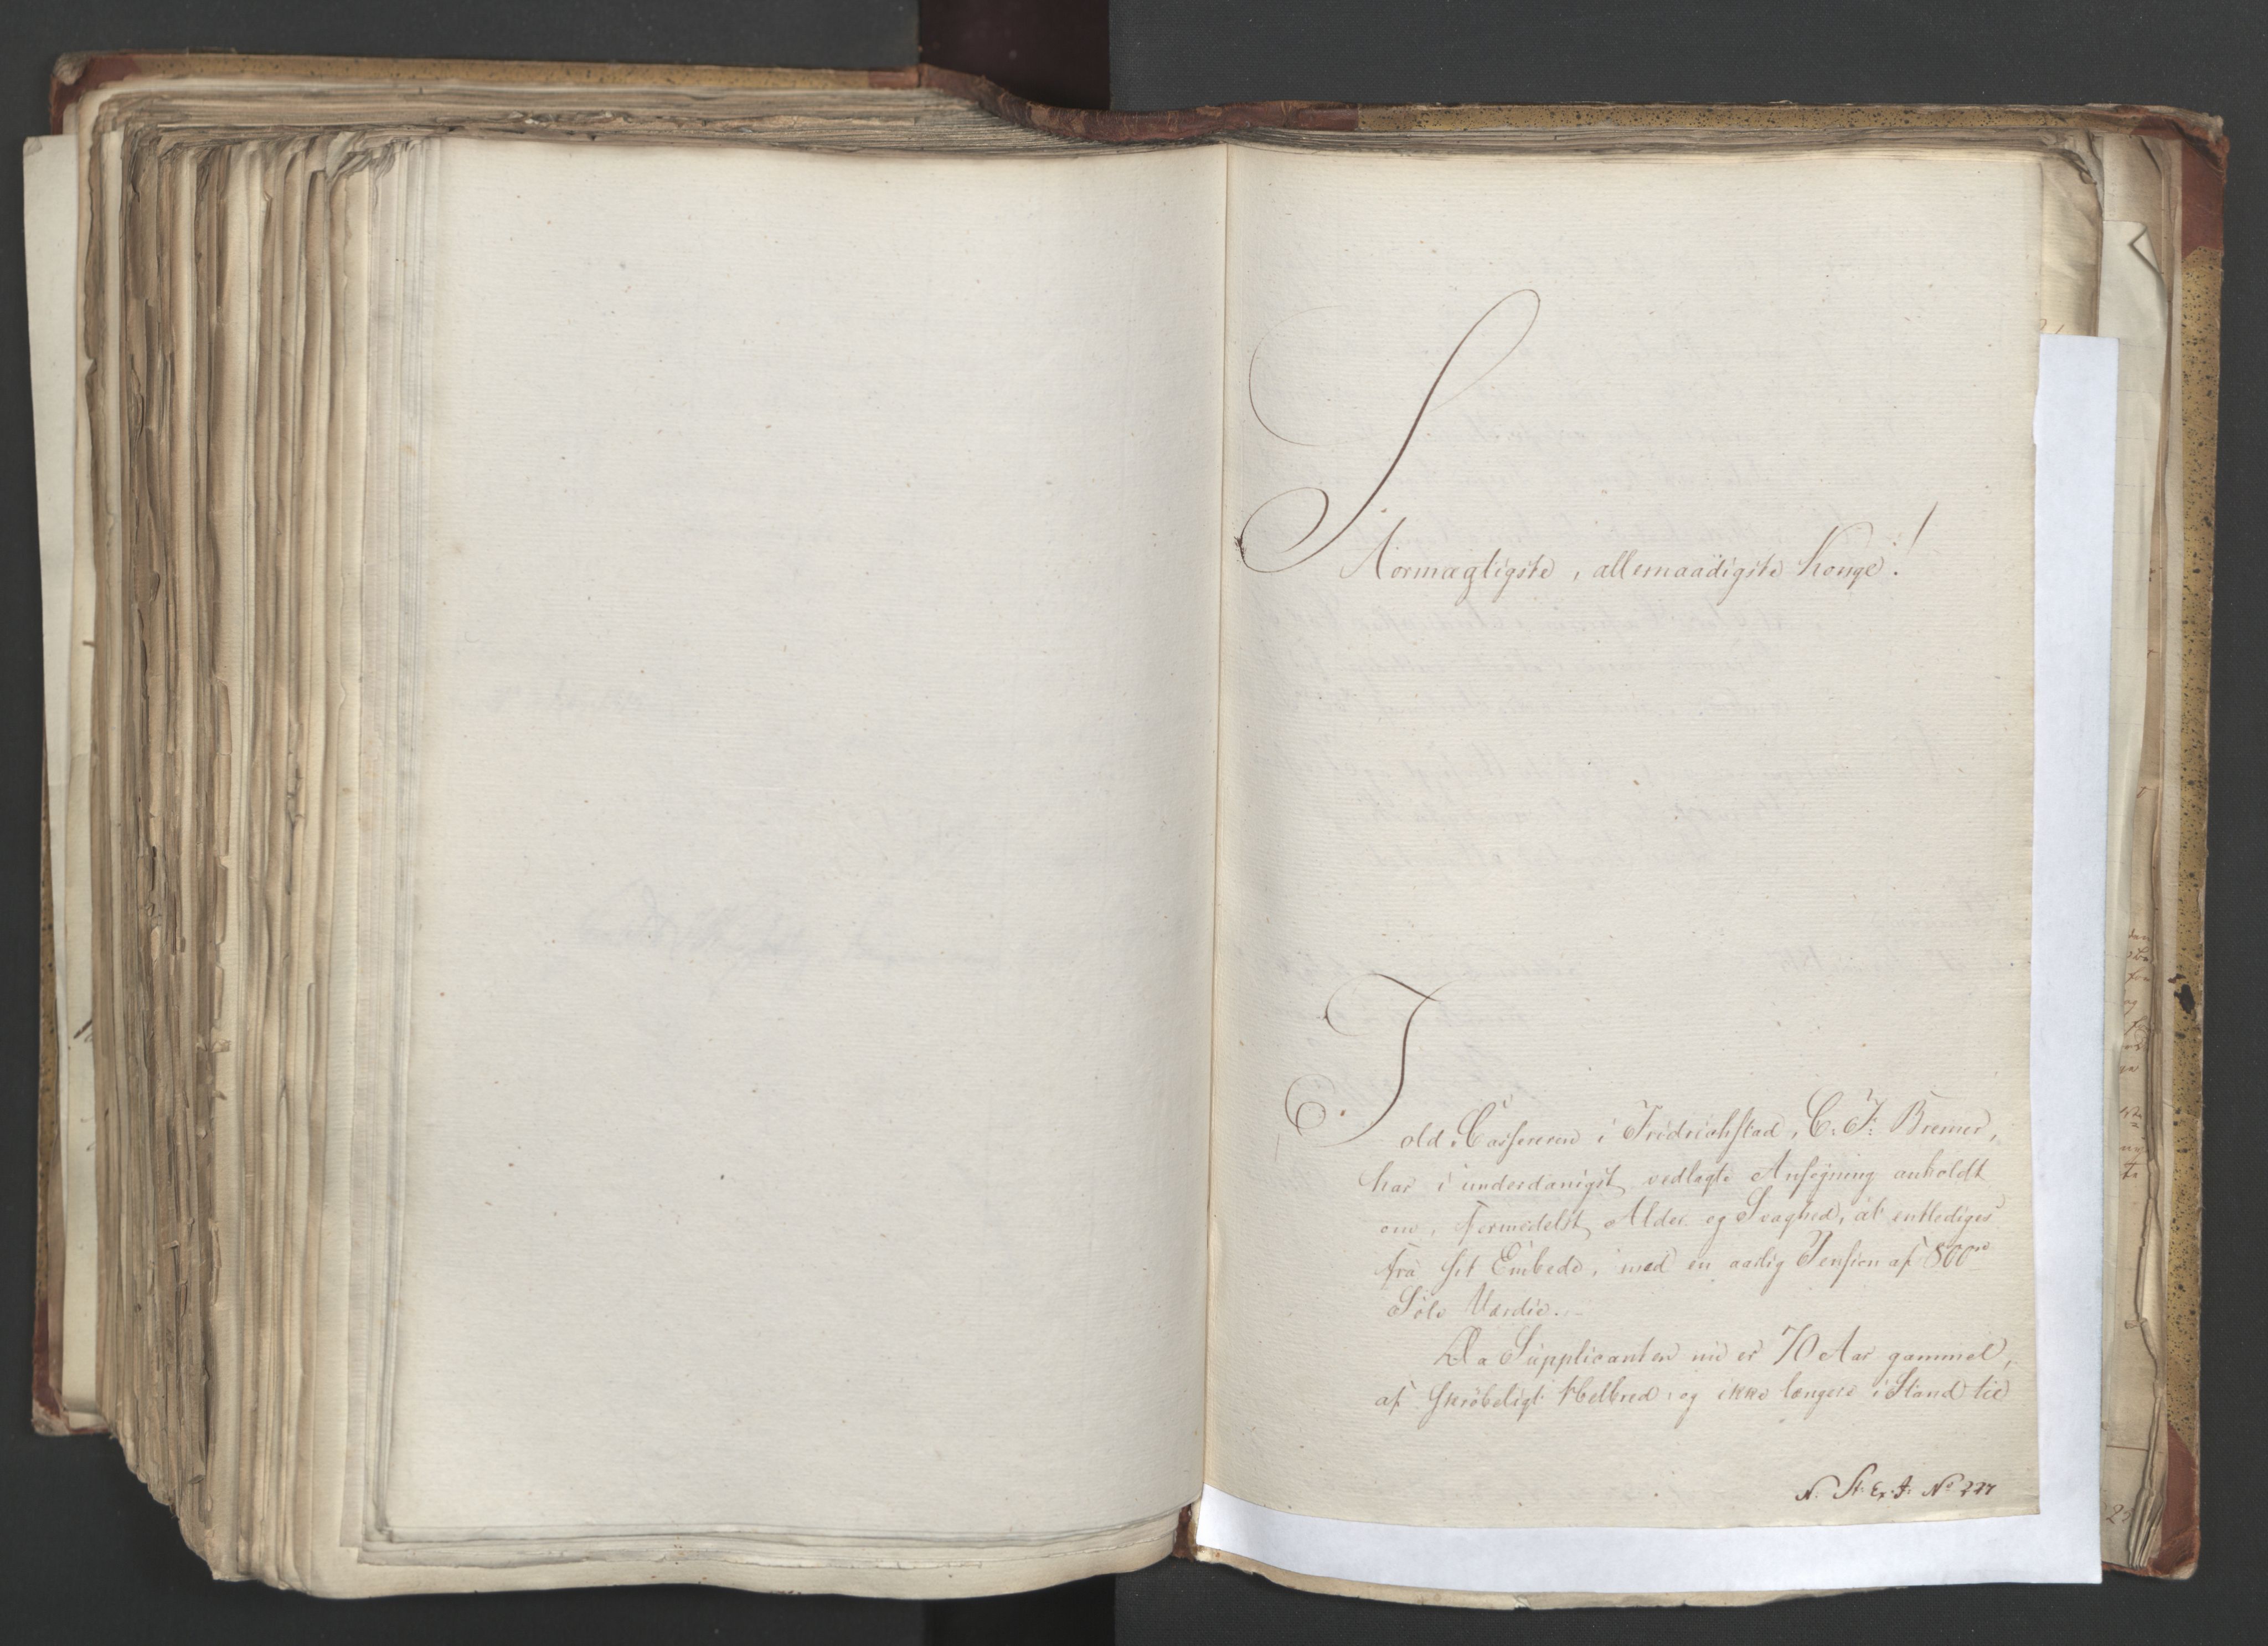 Stormægtigste, allernaadigste Konge!
Told-Casereren i Fridrichstad, C. F: Bremer,
har i underdanigst vedlagte Ansøgning anholdt
om, formedelst Alder og Svaghed, at entlediges
fra sit Embede, med en aarlig Pension af 800rd
Sølv Værdie.
Da Supplicanten nu er 70 Aar gammel,
af skrøbeligt Helbred og ikke længere i Stand til
N. St. Ex. J. No 227